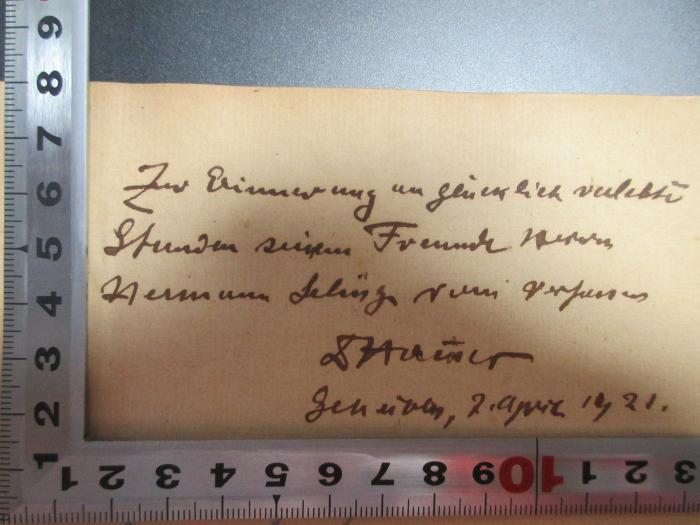 Zur Erinnerung an glücklich verlebte
Stunden seinem Freunde Herrn
Hermann vom Verfasser
2. April 1921.
9
8
7
6
5
4
3
2
1
1 2 3 4 5 6 7 8 9 10 1 2 3